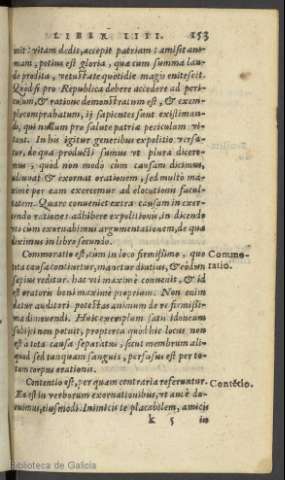 LIBER IIII. 153
mit: vitam dedit, accepit patriam: amisit ani-
mam, potius est gloria, quæ cum summa lau-
de prodita, vetustate quotidie magis enitescit.
Quòd si pro Republica debere accedere ad peri-
culum, & ratione demonstratum est, & exem-
plo comprobatum, ij sapientes sunt existiman-
di, qui nullum pro salute patriæ periculum vi-
tant. In his igitur generibus expolitio versa-
tur, de qua producti sumus vt plura dicere-
mus, quòd non modò cùm causam dicimus,
adiuvat & exornat orationem, sed multò ma-
ximè per eam exercemur ad elocutioni facul-
tatem. Quare conueniet extra causam in exer-
cendo rationes adhibere expolitionis, in dicendo
vti cùm exornabimus argumentationem, de qua
diximus in libro secundo.
Commoratio est, cùm in loco firmissimo, quo
tota causa continetur, manetur diutius, & eòdem
sæpius reditur. hac vti maximè conuenit, & id
est oratoris boni maximè proprium. Non enim
datur auditori potestas animum de re firmissi-
ma dimouendi. Huic exemplum satis idoneum
subijci non potuit, propterea quòd hic locus non
est à tota causa separatus, sicut membrum ali-
quod sed tanquam sanguis, perfusus est per to-
tum corpus orationis.
Contentio est, per quam contraria referuntur.
Ea est in verborum exornationibus, vt antè do-
cuimus, eiusmodi. Inimicis te placabilem, amicis
k 5 in
Commo-
ratio.
Contētio.
Biblioteca de Galicia